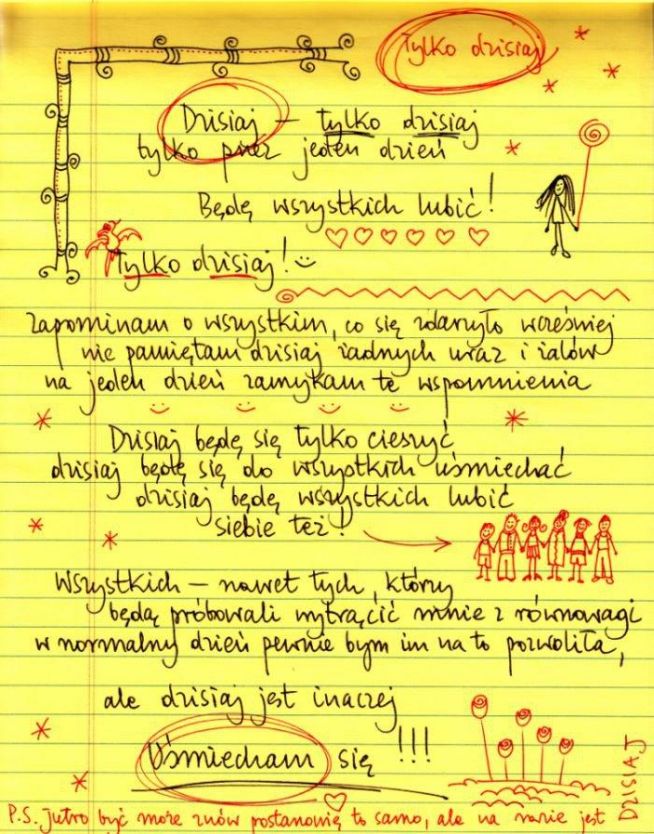 Tylko dzisiaj
Dzisiaj – tylko dzisiaj
tylko przez jeden dzień
Będę wszystkich lubić!
Tylko dzisiaj!
zapominam o wszystkim, co się zdarzyło wcześniej
nie pamiętam dzisiaj żadnych uraz i żalów
na jeden dzień zamykam te wspomnienia
Dzisiaj będę się tylko cieszyć
dzisiaj będę się do wszystkich uśmiechać
dzisiaj będę wszystkich lubić
siebie też!
Wszystkich – nawet tych, którzy
będą próbowali wytrącić mnie z równowagi
w normalny dzień pewnie bym im na to pozwoliła,
ale dzisiaj jest inaczej
Uśmiecham się !!!
P.S. Jutro być może znów postanowię to samo, ale na razie jest
DZISIAJ